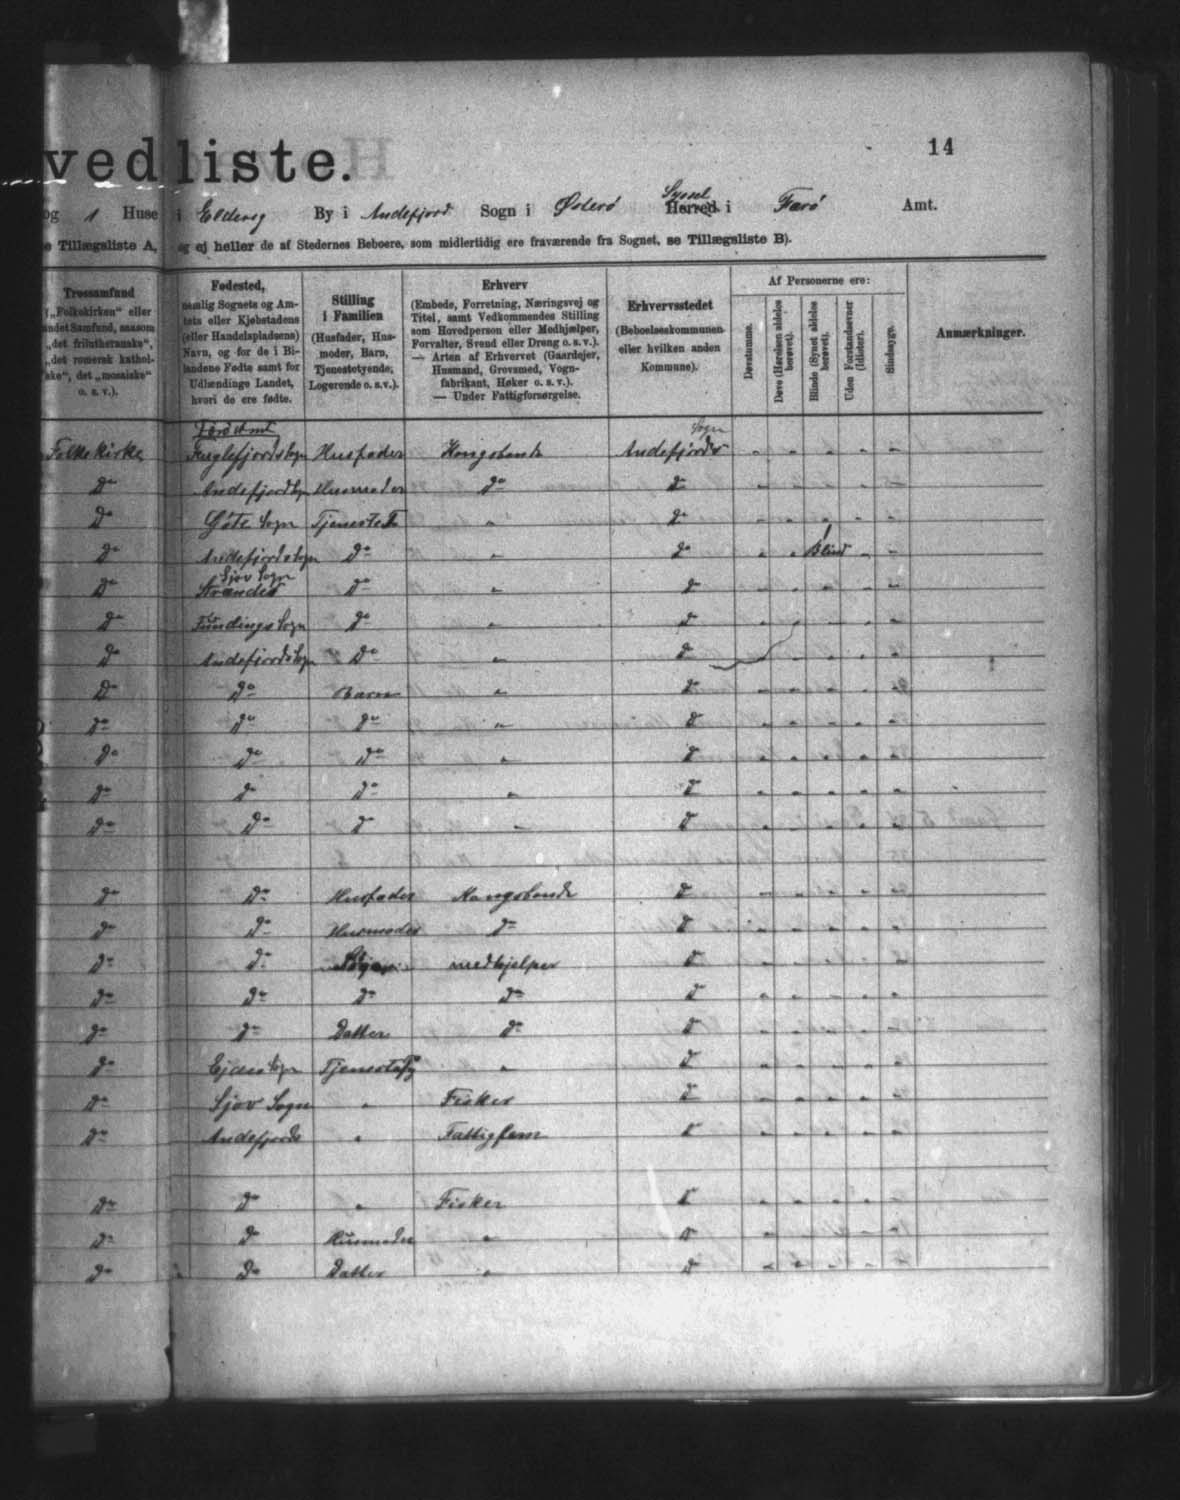 vedliste.
14
og 1 Huse i Eldevig By i Andefjord Sogn i Østerø Syssel Herred i Færø Amt.
e Tillægsliste A, og ej heller de af Stedernes Beboere, som midlertidig ere fraværende fra Sognet, se Tillægsliste B).
Trossamfund
(„Folkekirken“ eller
andet Samfund, saasom
„det frilutheranske“,
„det romersk kathol-
ske“, det „mosaiske“
o. s. v.).
Fødested,
nemlig Sognets og Am-
tets eller Kjøbstadens
(eller Handelspladsens)
Navn, og for de i Bi-
landene Fødte samt for
Udlændinge Landet,
hvori de ere fødte.
Stilling
i Familien
(Husfader, Hus-
moder, Barn,
Tjenestetyende,
Logerende o. s. v.).
Erhverv
(Embede, Forretning, Næringsvej og
Titel, samt Vedkommendes Stilling
som Hovedperson eller Medhjælper,
Forvalter, Svend eller Dreng o. s. v.).
— Arten af Erhvervet (Gaardejer,
Husmand, Grovsmed, Vogn-
fabrikant, Høker o. s. v.).
— Under Fattigforsørgelse.
Erhvervsstedet
(Beboelseskommunen
eller hvilken anden
Kommune).
Af Personerne ere:
Døvstumme.
Døve (Hørelsen aldeles
berøvet).
Blinde (Synet aldeles
berøvet).
Uden Forstandsevner
(Idioter).
Sindssyge.
Anmærkninger.
Færø Amt Sogn
Folkekirke Fuglefjords Sogn Husfader Kongsbonde Andefjords - - - - -
Do Andefjord Sogn Husmoder Do Do - - - - -
Do Gøte Sogn Tjeneste T " Do - - - - -
Do Andefjords Sogn Do " Do - - 1 Blind - -
Do Sjov Sogn Strændes Do " Do - - - - -
Do Fundings Sogn Do " D - - - - -
Do Andefjords Sogn Do " D - - - - -
Do Do Barn " D - - - - -
Do Do Do " D - - - - -
Do Do Do " D - - - - -
Do D Do " D - - - - -
Do Do D " D - - - - -
Do Do Husfader Kongsbonde D - - - - -
Do Do Husmoder Do D - - - - -
Do Do medhjelper D - - - - -
Do Do Do Do D - - - - -
Do Do Datter Do D - - - - -
Do Ejde Sogn " D - - - - -
Do Sjov Sogn " Fisker D - - - - -
Do Andefjords " Fattiglem D - - - - -
Do Do " Fisker D - - - - -
Do Do Husmoder " D - - - - -
Do Do Datter " D - - - - -